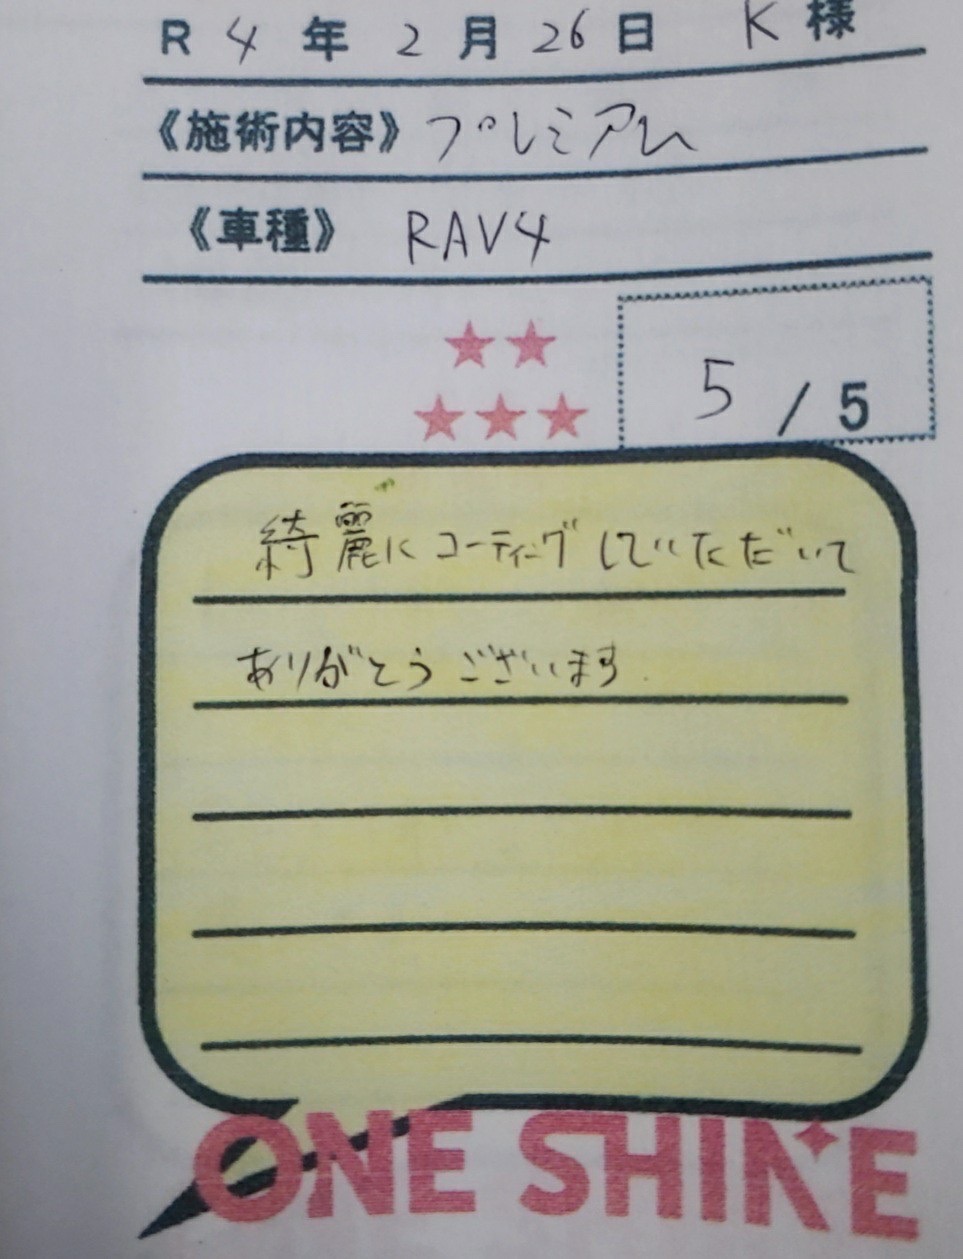 R 4 年 2 月 26 日 K 様
《施術内容》プレミアム
《車種》RAV4
5 / 5
綺麗にコーティングしていただいて
ありがとうございます.
ONE SHINE